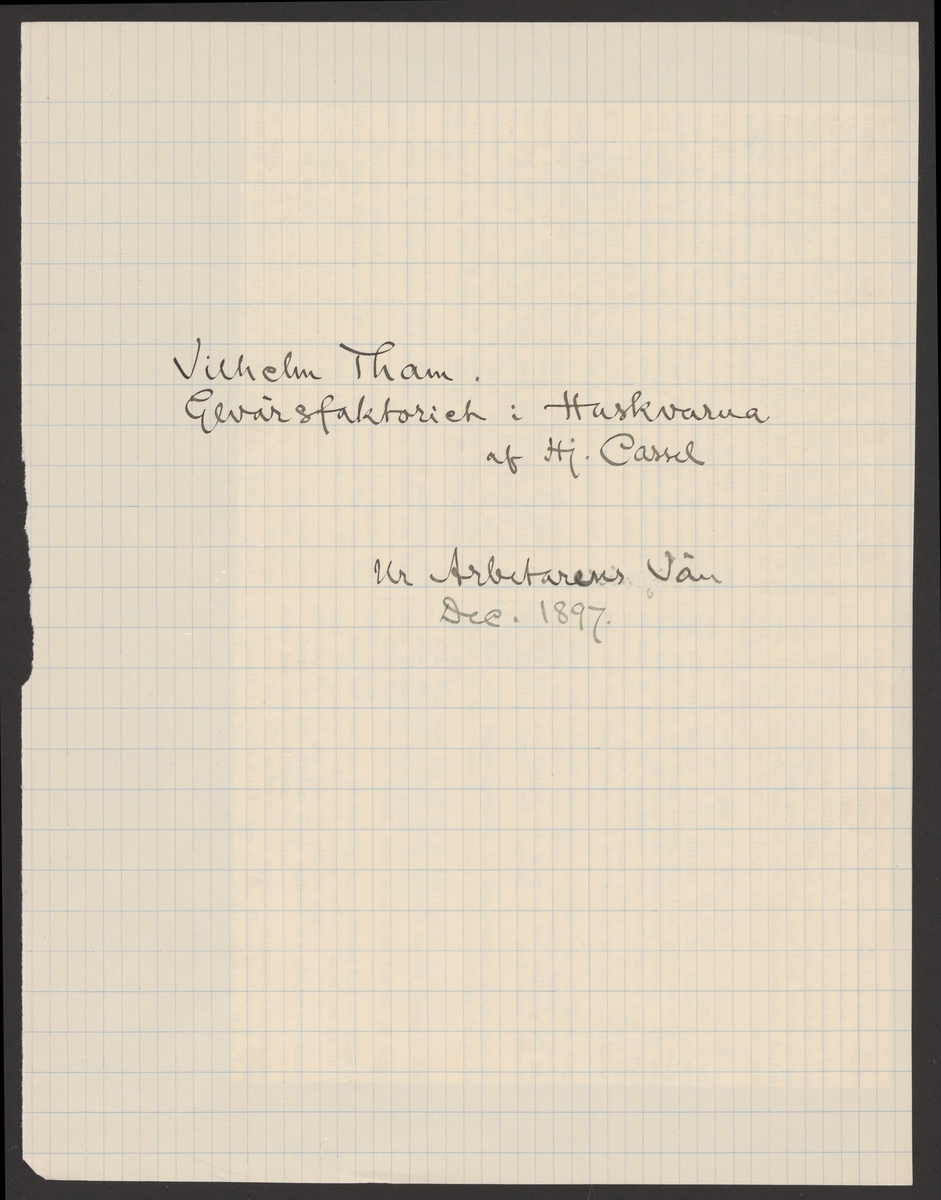 Vilhelm Tham.
Gevärsfaktoriet i Huskvarna
af Hj. Cassel
Ur Arbetarens Vän
Dec. 1897.